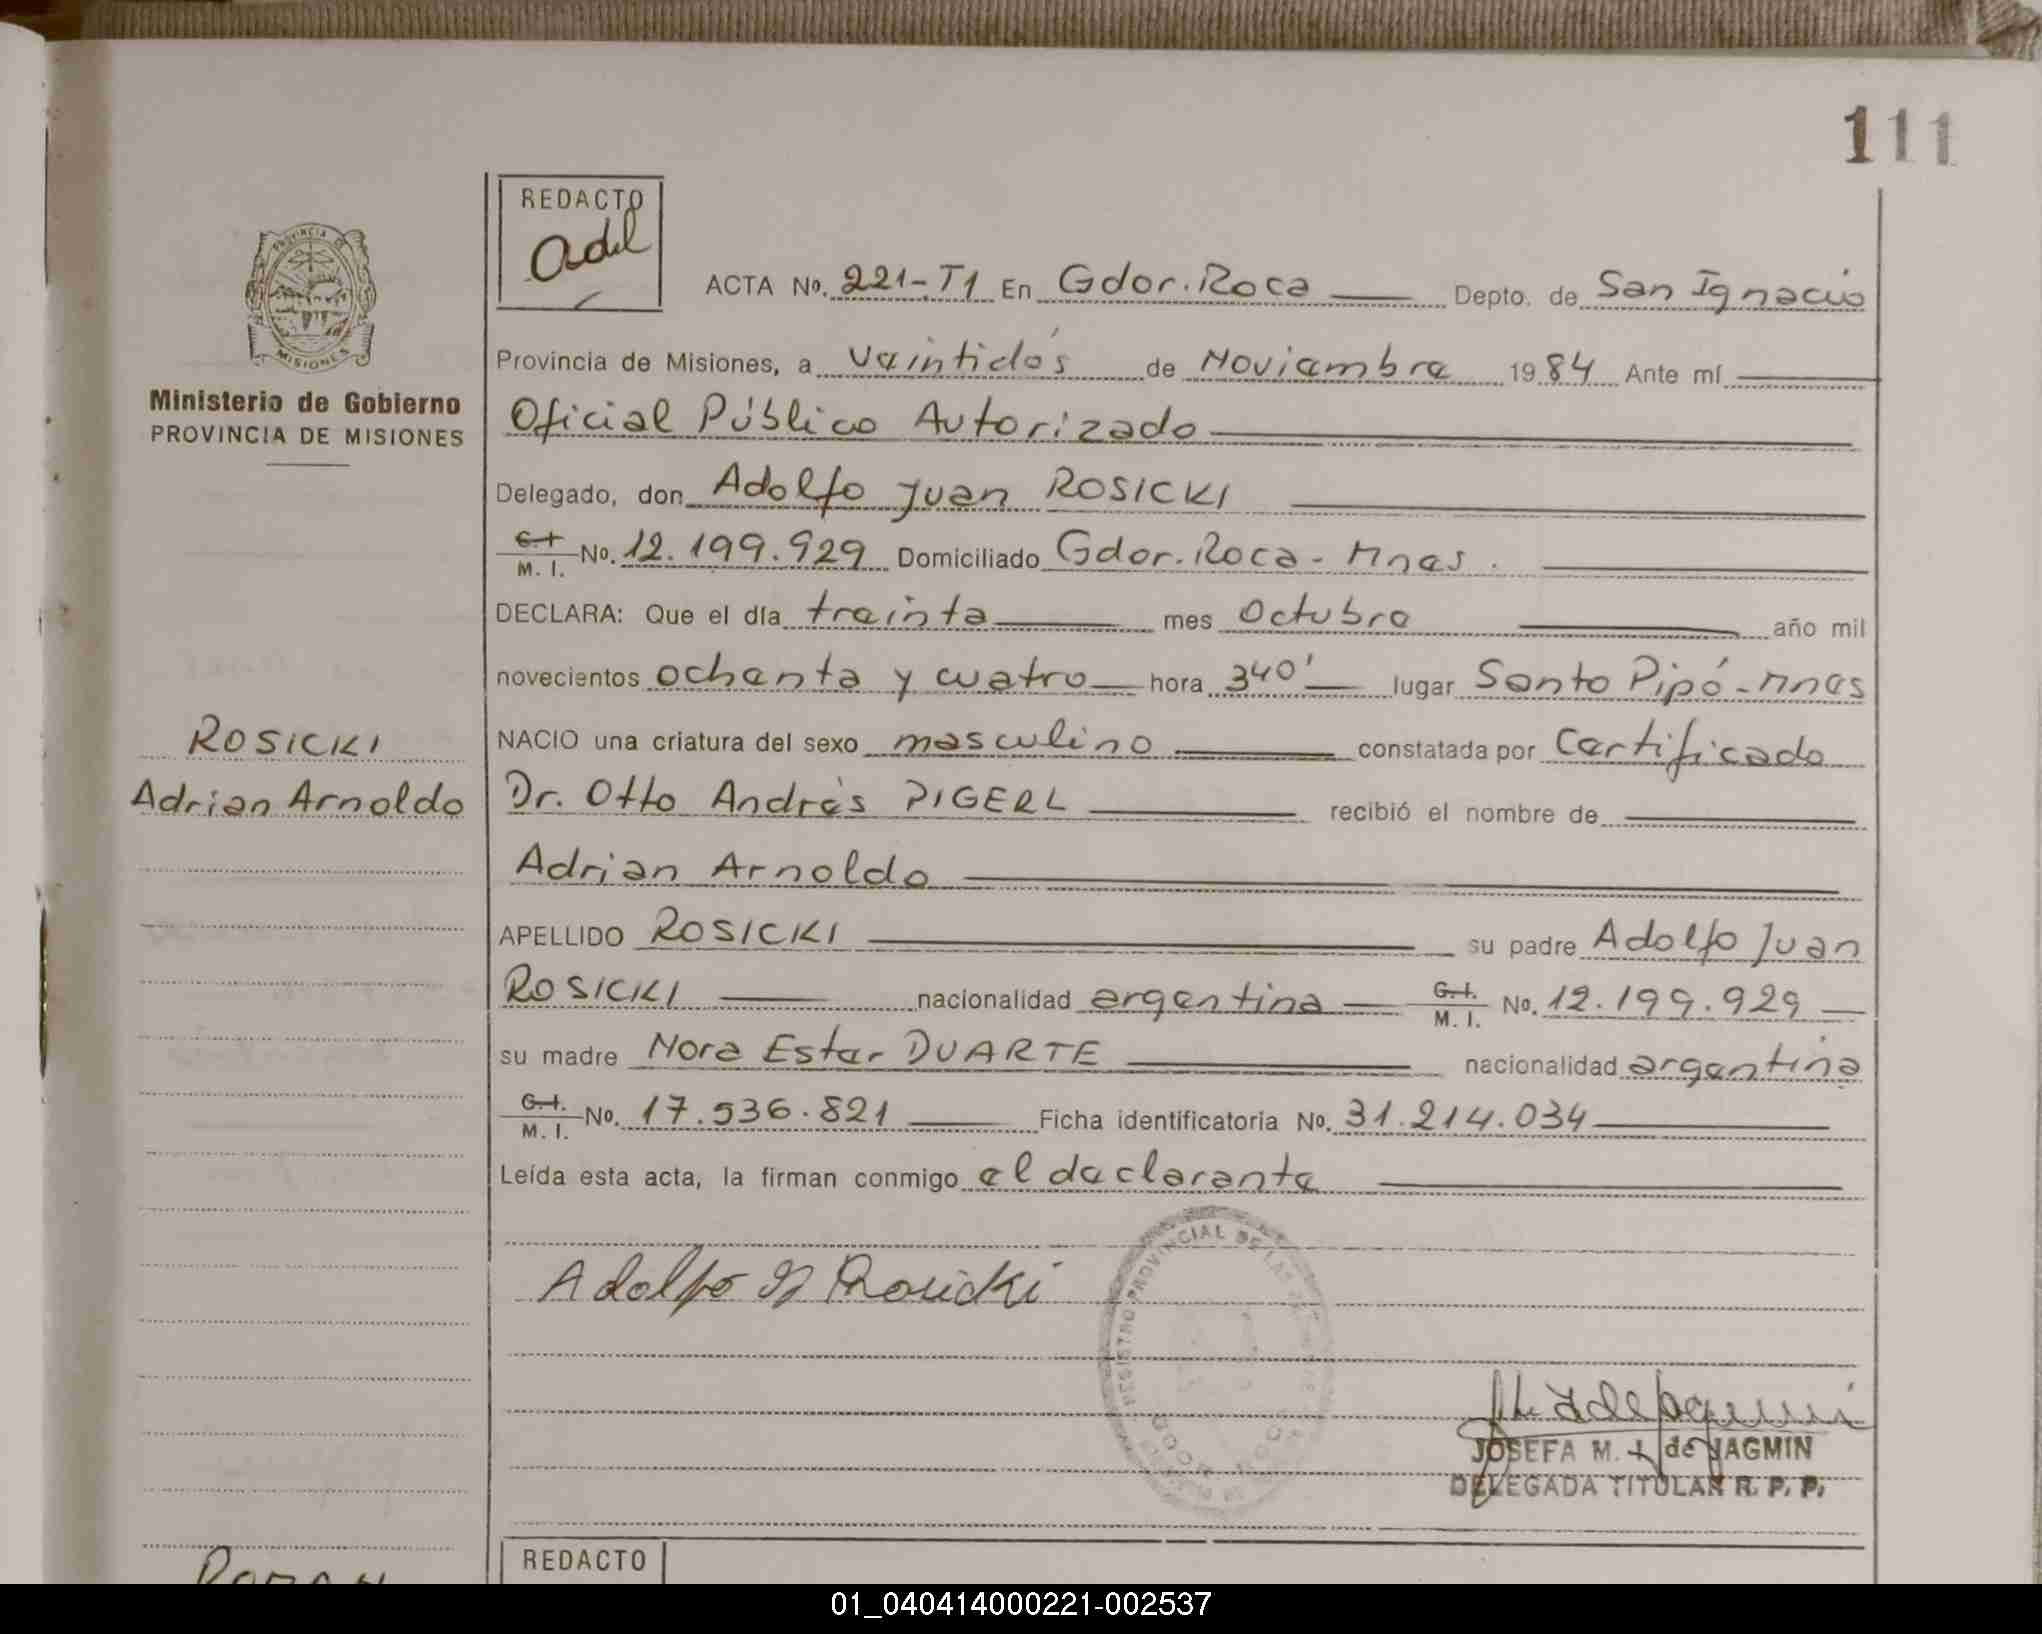 111
REDACTO
adil
ACTA No. 221-T1 En Gdor. Roca Depto. de San Ignacio
Provincia de Misiones, a Veintidós de Noviembre 1984 Ante mí
Oficial Público Autorizado
Delegado, don Adolfo Juan ROSICKI
C.I. M. I. No. 12.199.929 Domiciliado Gdor. Roca - Mnes.
DECLARA: Que el día treinta mes Octubre año mil
novecientos ochenta y cuatro hora 340' lugar Santo Pipó - Mnes
NACIO una criatura del sexo masculino constatada por Certificado
Dr. Otto Andrés PIGERL recibió el nombre de
Adrian Arnoldo
APELLIDO ROSICKI su padre Adolfo Juan
ROSICKI nacionalidad argentina C.I. M. I. No. 12.199.929
su madre Nora Ester DUARTE nacionalidad argentina
C.I. M. I. No. 17.536.821 Ficha identificatoria No. 31.214.034
Leída esta acta, la firman conmigo el declarante
Adolfo J Rosicki
REGISTRO PROVINCIAL DE LAS
JOSEFA M. de JAGMIN
DELEGADA TITULAR R. P. P.
PROVINCIA DE
MISIONES
Ministerio de Gobierno
PROVINCIA DE MISIONES
ROSICKI
Adrian Arnoldo
REDACTO
01_040414000221-002537